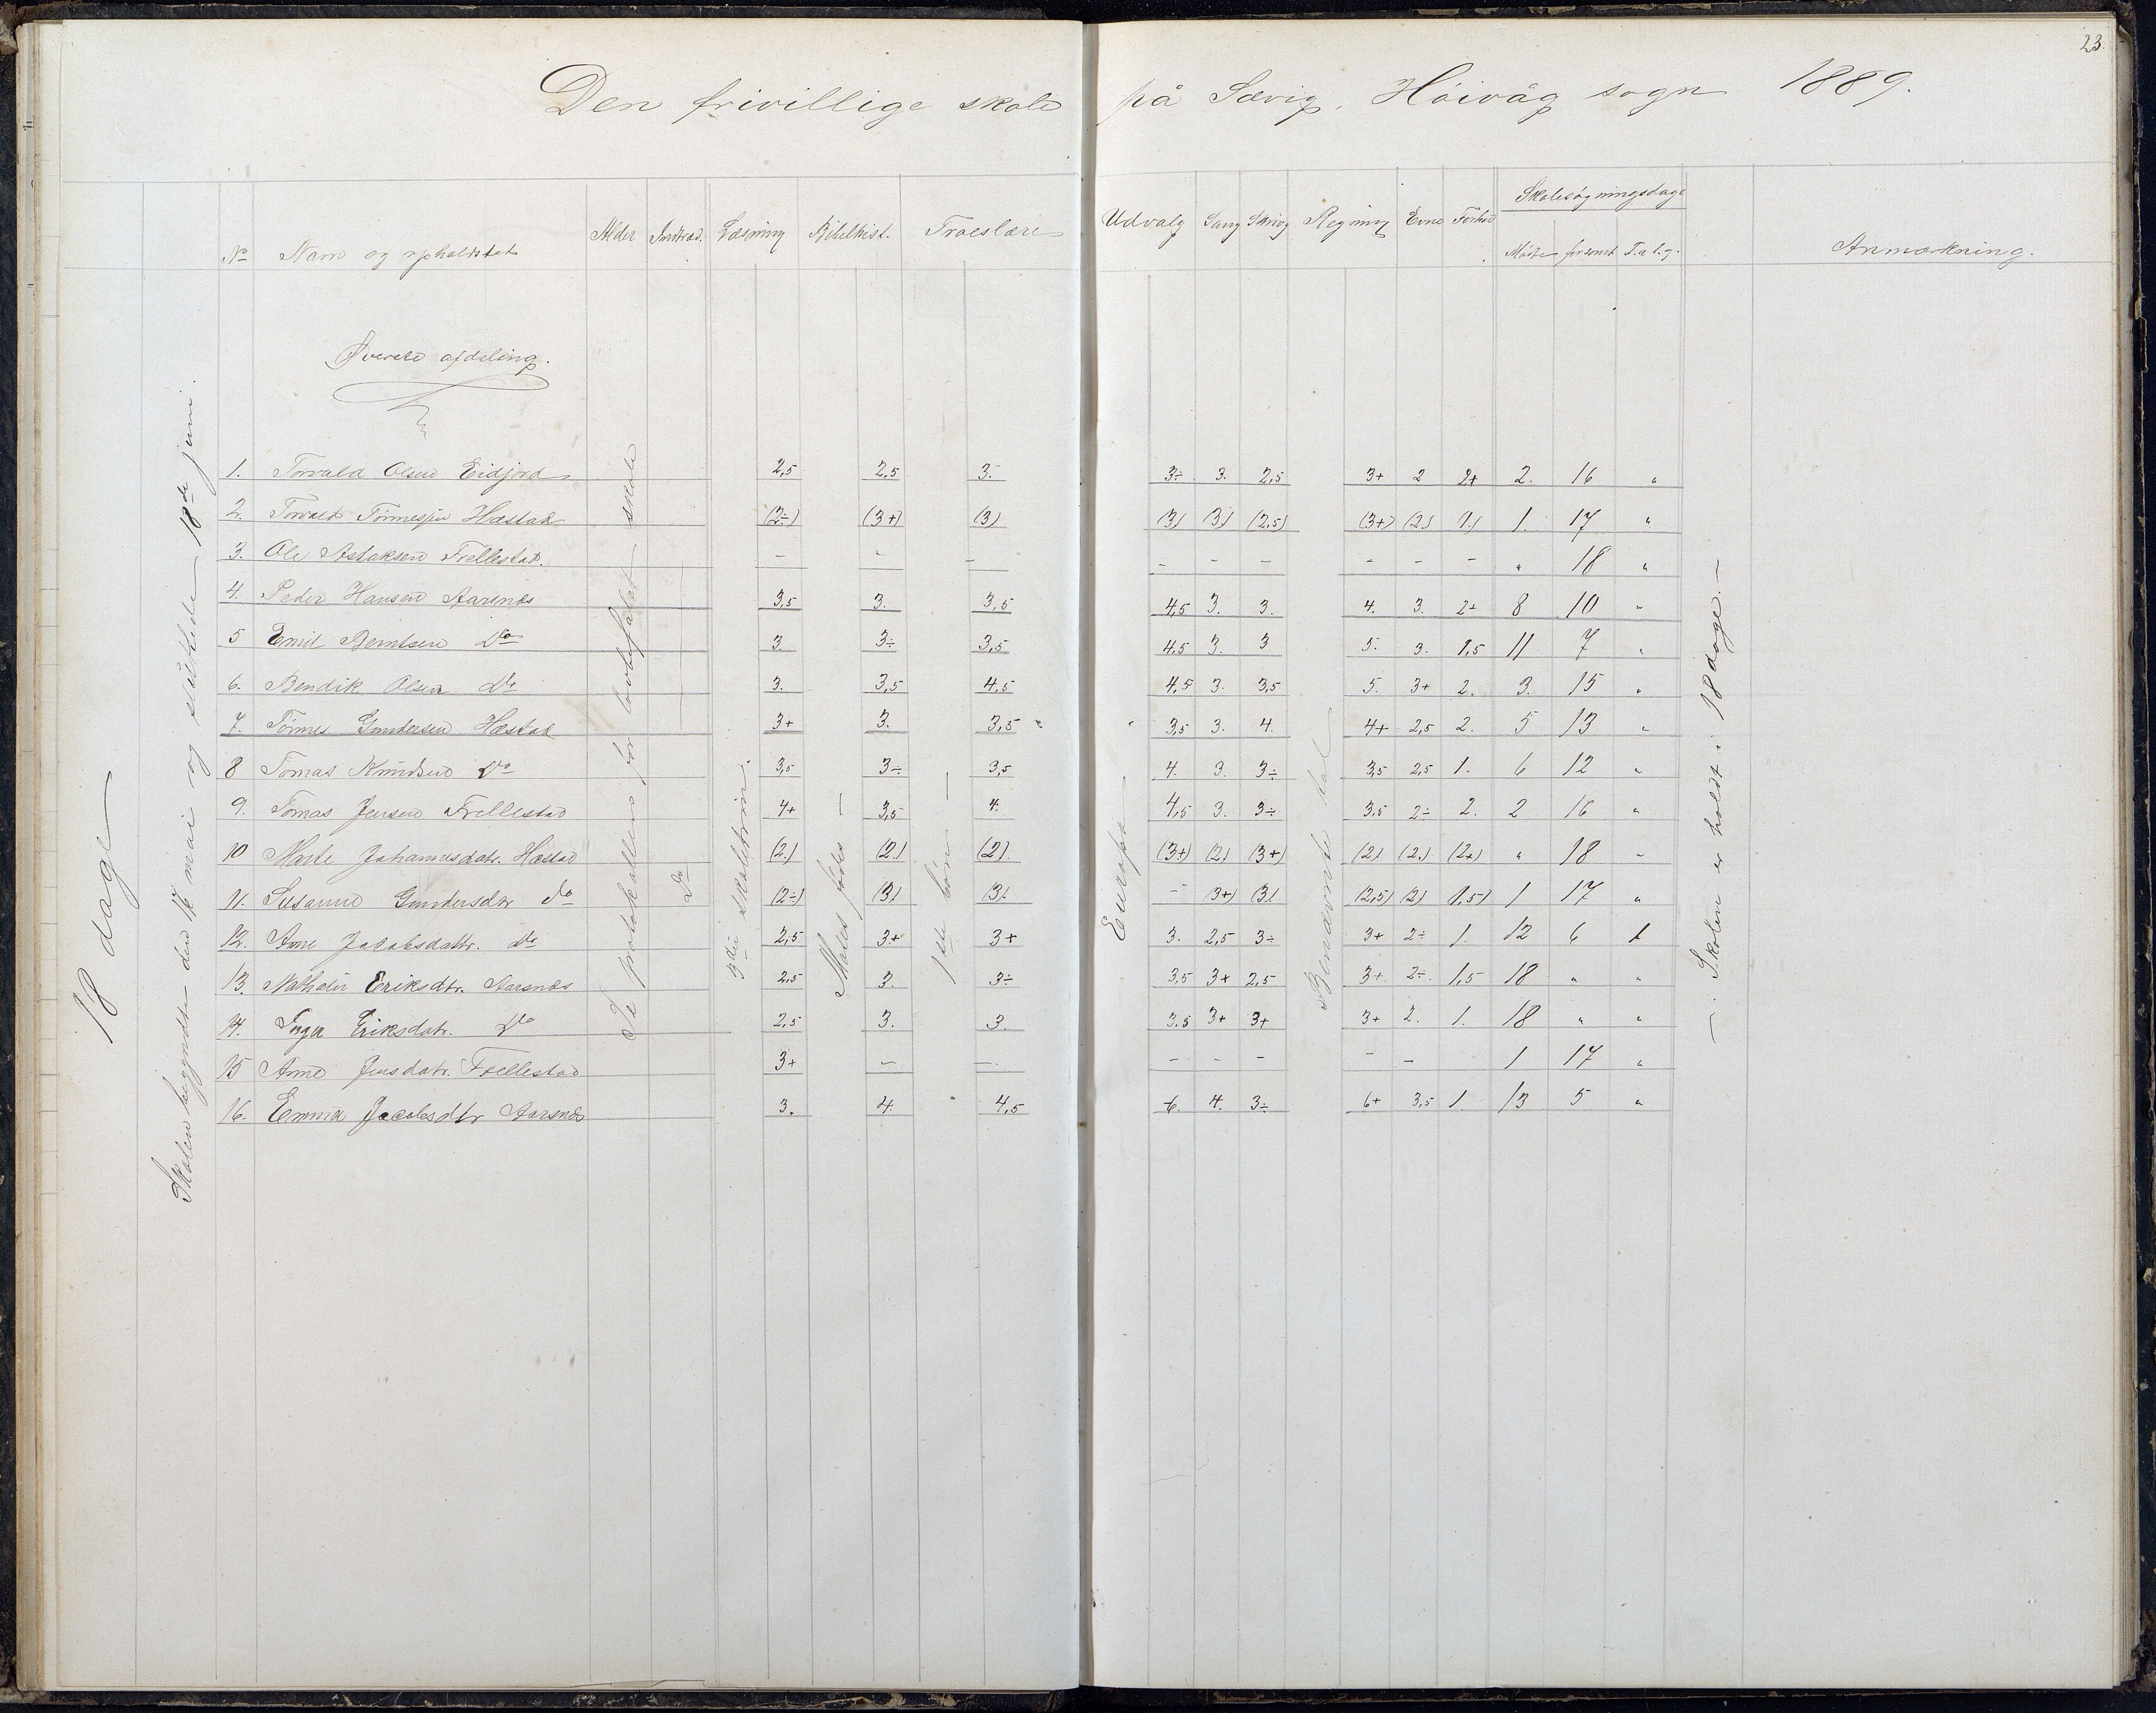 23.
Den frivillige skole på Sævig, Höivåg sogn 1889.
No Navn og opholdsted Alder Indtræd. Læsning Bibelhist. Troeslære Udvalg Sang Skrivg Regning Evne Forhold Skolesøgningsdage
Mødte forsømt T. a l. g. Anmærkning.
Øverste afdeling.
18 dage
Skolen begyndte den 16 mai og sluttede 18de juni.
Se protokollen for lovbefalet skole
Do
3die skoletrin.
Moses födes —
1ste bön —
Europa
Benævnte tal
— Skolen er holdt i 18 dage. —
1. Torvald Olsen Eidjord 2,5 2,5 3. 3÷ 3. 2,5 3+ 2 2+ 2. 16 "
2. Torvald Tönnesen Hæstad (2÷) (3+) (3) (3) (3) (2,5) (3+) (2.) 1.) 1. 17 "
3. Ole Aslaksen Trellestad. - - - - - - - - - " 18 "
4. Peder Hansen Aarsnes 3,5 3. 3,5 4,5 3. 3. 4. 3. 2+ 8 10 "
5 Emil Berntsen Do 3. 3÷ 3,5 4,5 3. 3 5. 3. 1,5 11 7 "
6. Bendik Olsen Do 3. 3,5 4,5 4,5 3. 3,5 5. 3+ 2. 3. 15 "
7. Tönnes Gundersen Hæstad 3+ 3. 3,5 3,5 3. 4. 4+ 2,5 2. 5 13 "
8 Tomas Knudsen Do 3,5 3÷ 3,5 4. 3. 3÷ 3,5 2,5 1. 6 12 "
9. Tomas Jensen Trellestad 4+ 3,5 4. 4,5 3. 3÷ 3,5 2÷ 2. 2 16 "
10 Marte Johannesdatr. Hæstad (2.) (2.) (2). (3+) (2) (3+) (2) (2.) (2+) " 18 "
11. Susanne Gundersdtr do (2÷) (3) (3). - (3+) (3) (2,5) (2) 1,5) 1 17 "
12. Anne Jacobsdattr. do 2,5 3+ 3+ 3. 2,5 3÷ 3+ 2÷ 1. 12 6 1
13. Nathalie Eriksdtr. Aarsnes 2,5 3. 3÷ 3,5 3+ 2,5 3+ 2÷ 1,5 18 " "
14. Inger Eriksdatr. Do 2,5 3. 3. 3,5 3+ 3+ 3+ 2. 1. 18 " "
15 Anne Jensdatr. Trellestad 3+ - - - - - - - 1 17 "
16. Emma Jacobsdtr Aarsnes 3. 4. 4,5 6. 4. 3÷ 6+ 3,5 1. 13 5 "